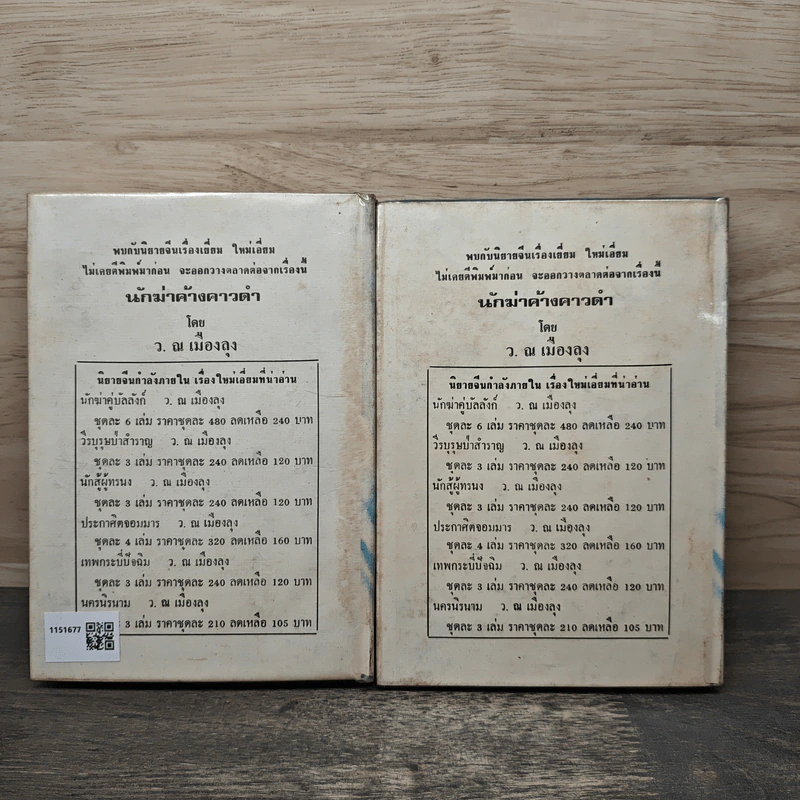 พบกับนิยายจีนเรื่องเยี่ยม ใหม่เอี่ยม
ไม่เคยตีพิมพ์มาก่อน จะออกวางตลาดต่อจากเรื่องนี้
นักฆ่าค้างคาวดำ
โดย
ว. ณ เมืองลุง
นิยายจีนกำลังภายใน เรื่องใหม่เอี่ยมที่น่าอ่าน
นักฆ่าคู่บัลลังก์ ว. ณ เมืองลุง
ชุดละ 6 เล่ม ราคาชุดละ 480 ลดเหลือ 240 บาท
วีรบุรุษป่าสำราญ ว. ณ เมืองลุง
ชุดละ 3 เล่ม ราคาชุดละ 240 ลดเหลือ 120 บาท
นักสู้ผู้ทรนง ว. ณ เมืองลุง
ชุดละ 3 เล่ม ราคาชุดละ 240 ลดเหลือ 120 บาท
ประกาศิตจอมมาร ว. ณ เมืองลุง
ชุดละ 4 เล่ม ราคาชุดละ 320 ลดเหลือ 160 บาท
เทพกระบี่ปัจฉิม ว. ณ เมืองลุง
ชุดละ 3 เล่ม ราคาชุดละ 240 ลดเหลือ 120 บาท
นครนิรนาม ว. ณ เมืองลุง
3 เล่ม ราคาชุดละ 210 ลดเหลือ 105 บาท
1151677
พบกับนิยายจีนเรื่องเยี่ยม ใหม่เอี่ยม
ไม่เคยตีพิมพ์มาก่อน จะออกวางตลาดต่อจากเรื่องนี้
นักฆ่าค้างคาวดำ
โดย
ว. ณ เมืองลุง
นิยายจีนกำลังภายใน เรื่องใหม่เอี่ยมที่น่าอ่าน
นักฆ่าคู่บัลลังก์ ว. ณ เมืองลุง
ชุดละ 6 เล่ม ราคาชุดละ 480 ลดเหลือ 240 บาท
วีรบุรุษป่าสำราญ ว. ณ เมืองลุง
ชุดละ 3 เล่ม ราคาชุดละ 240 ลดเหลือ 120 บาท
นักสู้ผู้ทรนง ว. ณ เมืองลุง
ชุดละ 3 เล่ม ราคาชุดละ 240 ลดเหลือ 120 บาท
ประกาศิตจอมมาร ว. ณ เมืองลุง
ชุดละ 4 เล่ม ราคาชุดละ 320 ลดเหลือ 160 บาท
เทพกระบี่ปัจฉิม ว. ณ เมืองลุง
ชุดละ 3 เล่ม ราคาชุดละ 240 ลดเหลือ 120 บาท
นครนิรนาม ว. ณ เมืองลุง
ชุดละ 3 เล่ม ราคาชุดละ 210 ลดเหลือ 105 บาท